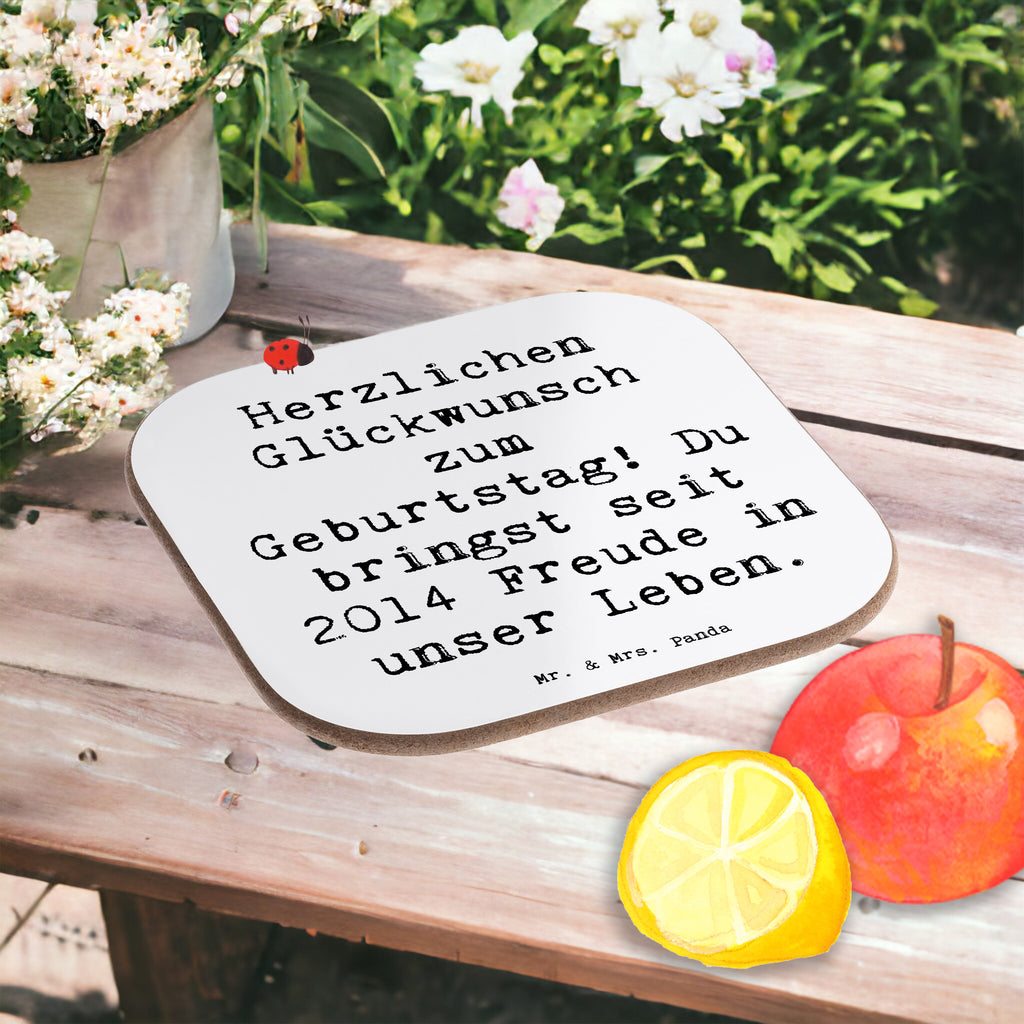 Herzlichen
Glückwunsch
zum
Geburtstag! Du
bringst seit
2014 Freude in
unser Leben.
Mr. & Mrs. Panda